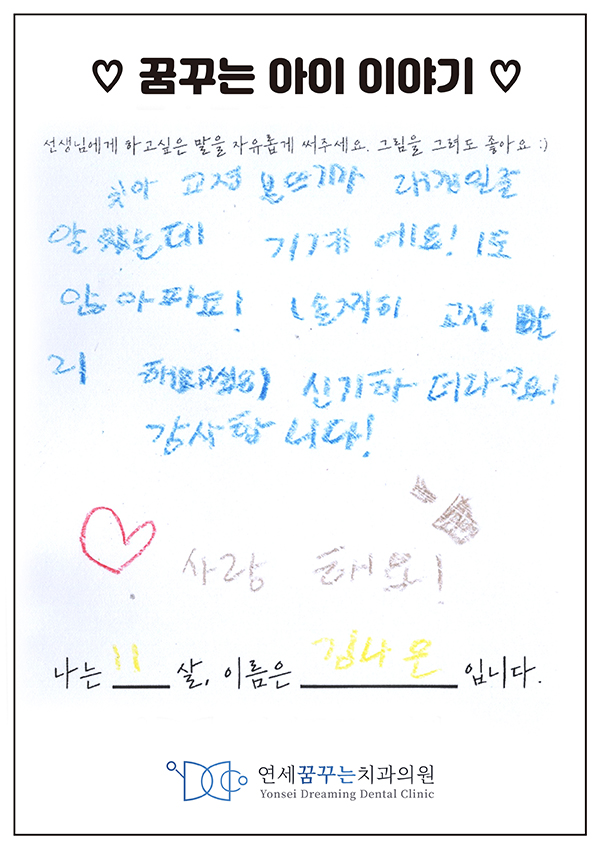 ♡ 꿈꾸는 아이 이야기 ♡
선생님에게 하고싶은 말을 자유롭게 써주세요. 그림을 그려도 좋아요 :)
치아 교정 본뜨기가
알았는데 기계 에요! 1도
안 아파요! 솔찍히 교정 빨
리 해보고싶어 신기하 더라구요!
감사합니다!
사랑 해요!
나는 11 살, 이름은 김나온 입니다.
연세꿈꾸는치과의원
Yonsei Dreaming Dental Clinic